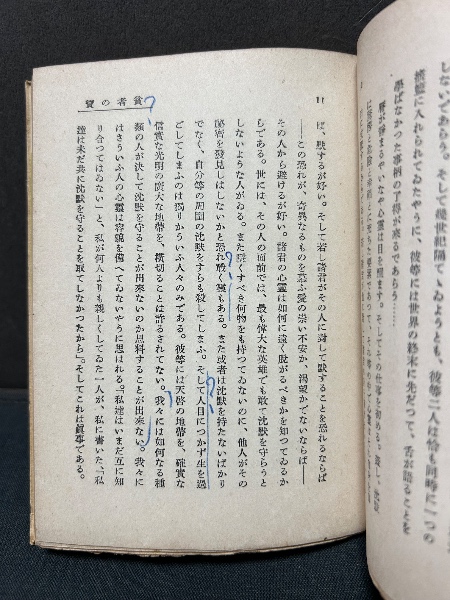 しないであらう。そして幾世紀隔てゝゐようとも、彼等二人は恰も同時に一つの
搖籃に入れられてゐたやうに、彼等には世界の終末に先だつて、舌が語ることを
學ばなかつた事柄の了得が來るであらう……
貧者の寶
11
ば、默するが好い。そして若し諸君がその人に對して默することを恐れるならば
――この恐れが、奇異なるものを慕ふ愛の崇い不安か、渴望かでないならば――
その人から避けるが好い。諸君の心靈は如何に遠く設がるべきかを知つてゐるか
らである。世には、その人の面前では、最も偉大な英雄でも敢て沈默を守らうと
しないような人がゐる。また隱くすべき何物をも持つてゐないのに、他人がその
祕密を發見しはしないかと恐れ戰く靈もある。また或者は沈默を持たないばかり
でなく、自分等の周圍の沈默をすらも殺してしまふ。そして人目につかず生を過
ごしてしまふのは獨りかういふ人々のみである。彼等には天啓の地帶を、確實な
信實な光明の廣大な地帶を、橫切ることは許されてない。我々には如何なる種
類の人が決して沈默を守ることが出來ないのか思料することが出來ない。我々に
はさういふ人の心靈は容貌を備へてゐないやうに思はれる。「私達はいまだ互に知
り合つてはゐない」と、私が何人よりも親しくしてゐた一人が、私に書いた、「私
達は未だ共に沈默を守ることを敢てしなかつたから」そしてこれは眞事である。